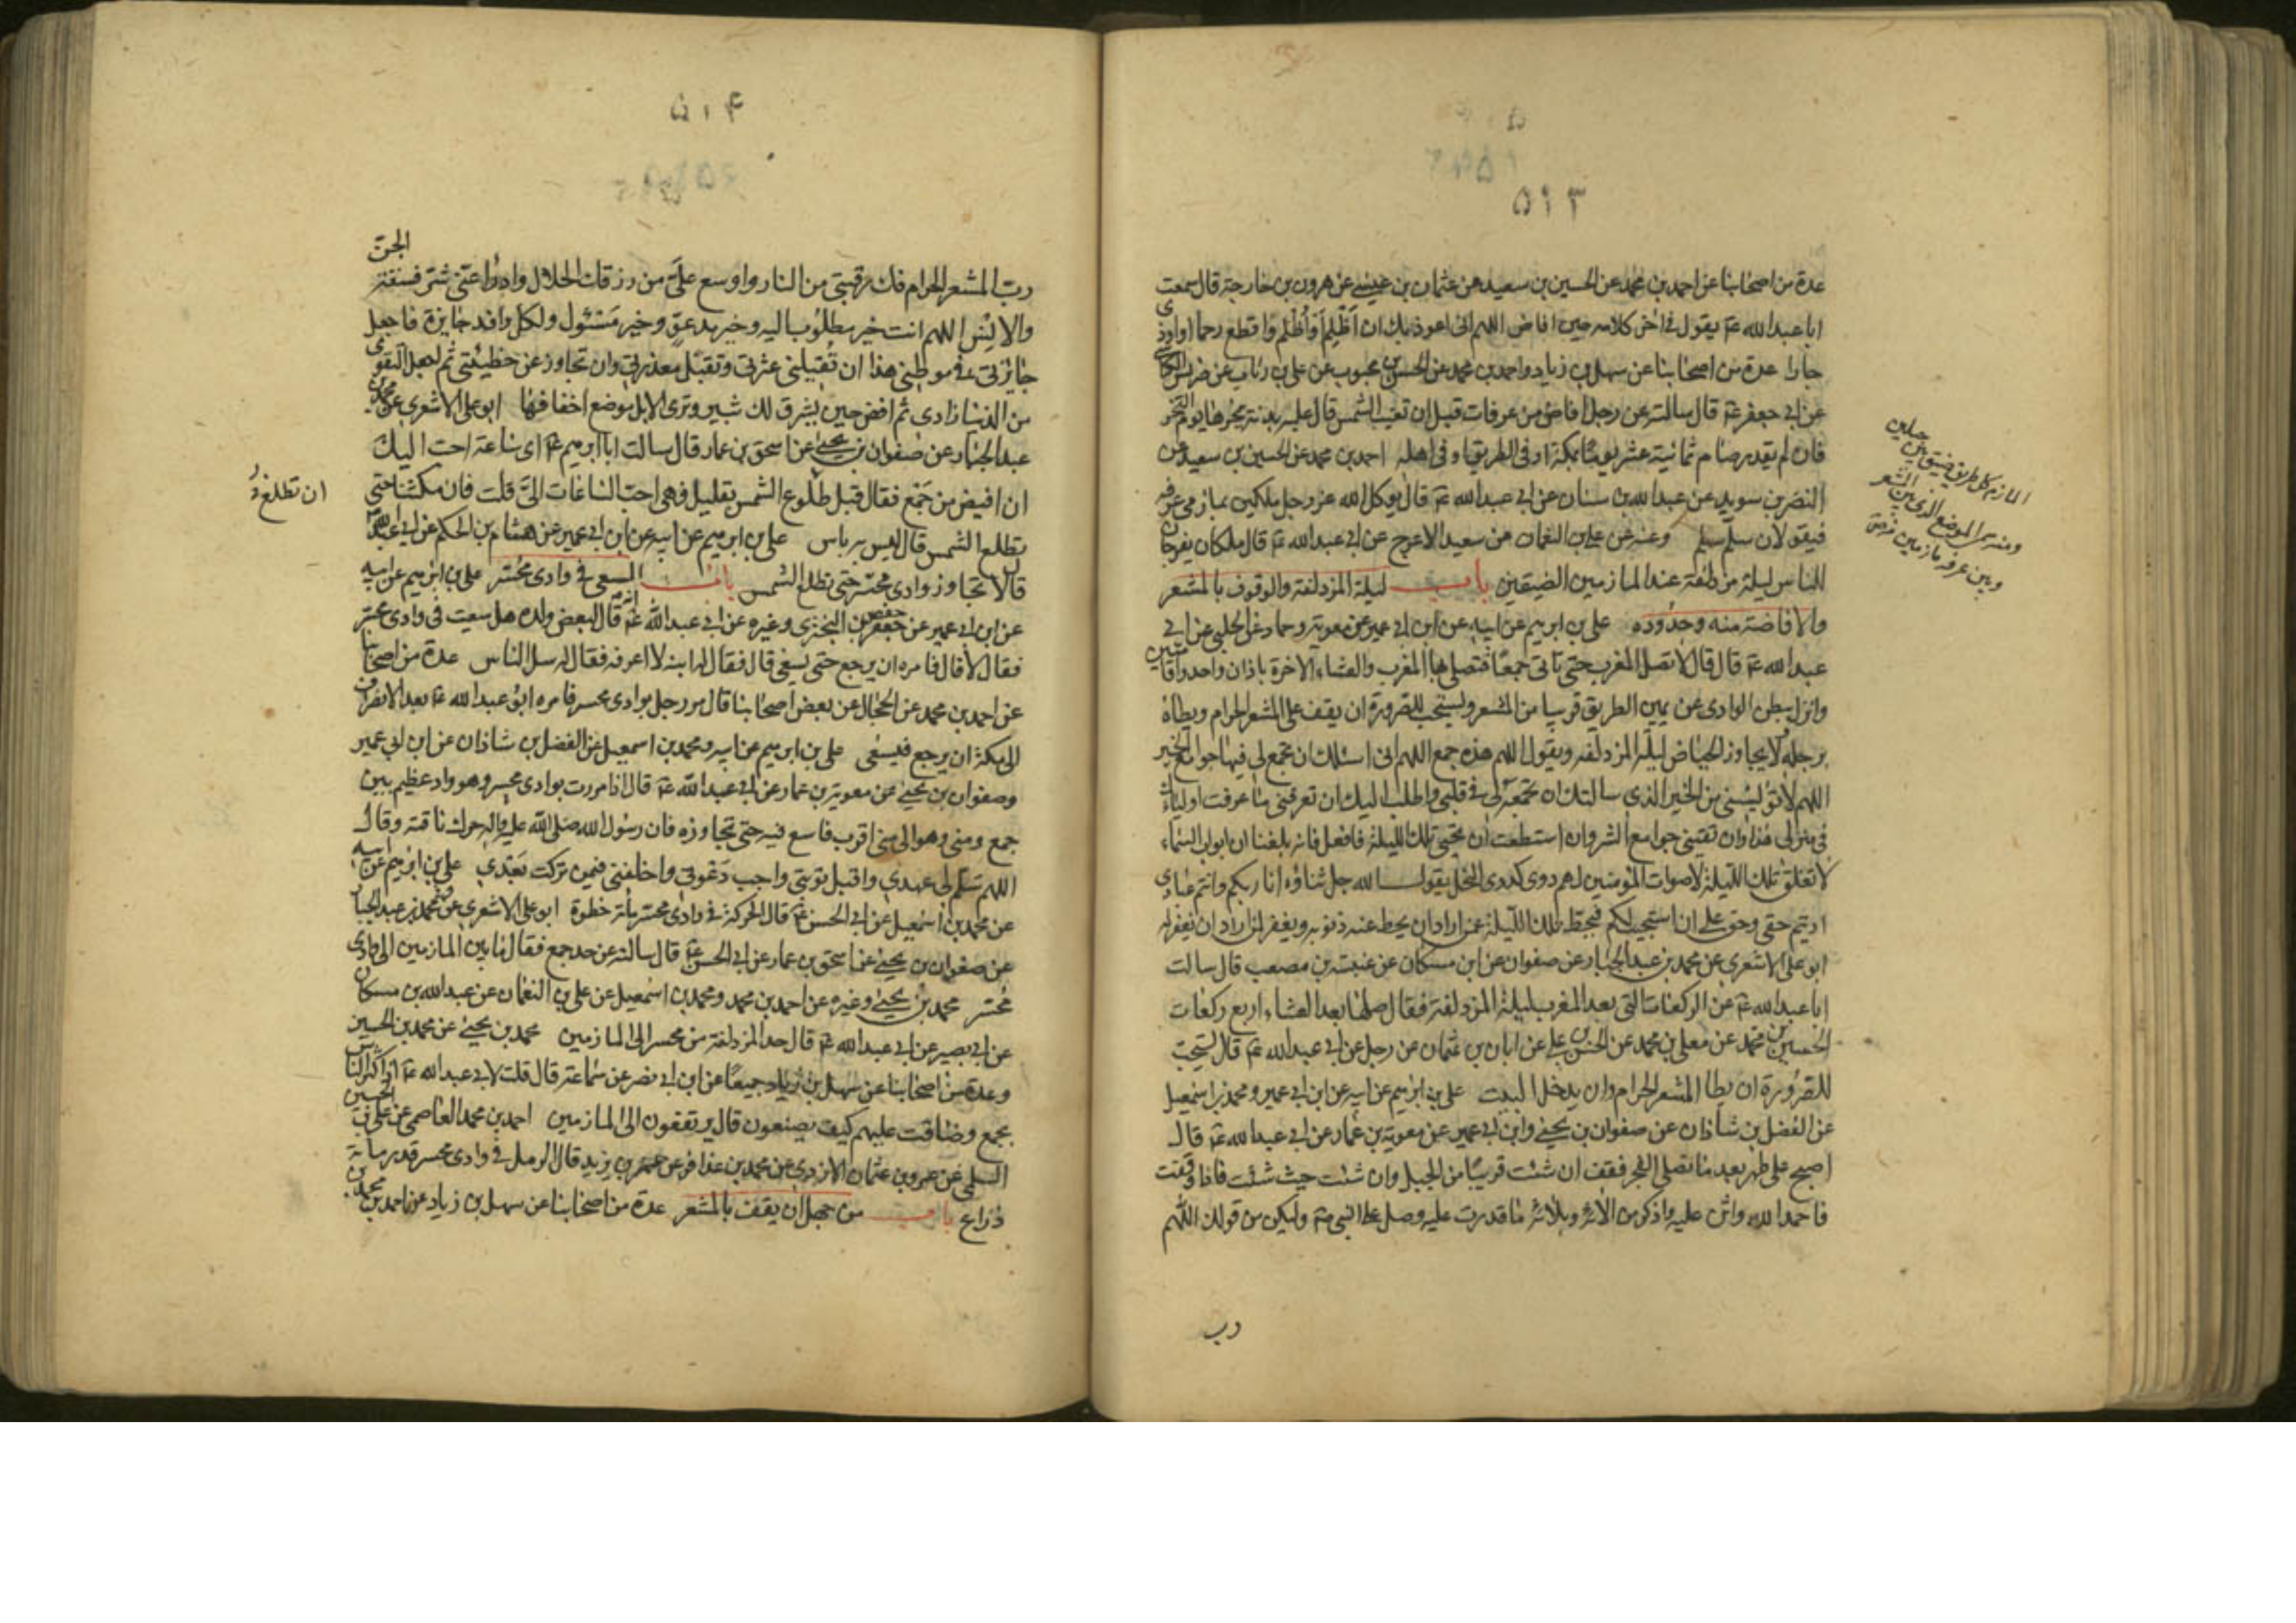 ٥١٣
عدة من اصحابنا عن احمد بن محمد عن الحسين بن سعيد عن عثمان بن عيسى عن هرون بن خارجة قال سمعت
ابا عبدالله ع يقول في اخر كلامه حين افاض اللهم انى اعوذ بك ان اَظْلِمَ اَوْ اُظْلَم او اقطع رحما او اوذى
جارا عدة من اصحابنا عن سهل بن زياد واحمد بن محمد عن الحسن بن محبوب عن على بن رئاب عن ضريس الكناسى
عن ابى جعفر ع قال سالته عن رجل افاض من عرفات قبل ان تغيب الشمس قال عليه بدنة ينحرها يوم النحر
فان لم يقدر صام ثمانية عشر يوما بمكة او فى الطريق او فى اهله احمد بن محمد عن الحسين بن سعيد عن
النضر بن سويد عن عبدالله بن سنان عن ابى عبدالله ع قال يوكل الله عز وجل ملكين بمازمى عرفه
فيقولان سلّم سلّم وعنه عن على بن النعمان عن سعيد الاعرج عن ابى عبدالله ع قال ملكان يفرجان
للناس ليلة مزدلفة عند المازمين الضيقين باب ليلة المزدلفة والوقوف بالمشعر
والافاضة منه وحدوده على بن ابرهيم عن ابيه عن ابن ابى عمير عن معوية وحماد عن الحلبى عن ابى
عبدالله ع قال قال لا تصل المغرب حتى تاتى جمعًا فتصلى بها المغرب والعشاء الاخرة باذان واحد واقامتين
وانزل ببطن الوادى عن يمين الطريق قريبا من المشعر ويستحب للصرورة ان يقف على المشعر الحرام ويطاه
برجله ولا يجاوز الحياض ليلة المزدلفه ويقول اللهم هذه جمع اللهم انى اسئلك ان تجمع لى فيها جوامع الخير
اللهم لا تؤيسنى من الخير الذى سالتك ان تجمعه لى فى قلبى واطلب اليك ان تعرفنى ما عرفت اولياءك
فى منزلى هذا وان تقينى جوامع الشر وان استطعت ان تحيى تلك الليلة فافعل فانه بلغنا ان ابواب السماء
لا تغلق تلك الليلة لاصوات المؤمنين لهم دوى كدوى النحل يقول الله جل ثناؤه انا ربكم وانتم عبادى
اديتم حقى وحق على ان استجيب لكم فيحط تلك الليلة عن اراد ان يحط عنه ذنوبه ويغفر لمن اراد ان يغفر له
ابو على الاشعرى عن محمد بن عبد الجبار عن صفوان عن ابن مسكان عن عنبسة بن مصعب قال سالت
ابا عبدالله ع عن الركعات التى بعد المغرب ليلة المزدلفة فقال صلها بعد العشاء اربع ركعات
الحسين بن محمد عن معلى بن محمد عن الحسن بن على عن ابان بن عثمان عن رجل عن ابى عبدالله ع قال يستحب
للصرورة ان يطا المشعر الحرام وان يدخل البيت على بن ابرهيم عن ابيه عن ابن ابى عمير ومحمد بن اسمعيل
عن الفضل بن شاذان عن صفوان بن يحيى وابن ابى عمير عن معوية بن عمار عن ابى عبدالله ع قال
اصبح على طهر بعد ما تصلى الفجر فقف ان شئت قريبًا من الجبل وان شئت حيث شئت فاذا وقفت
فاحمد الله واثن عليه واذكر من الائه وبلائه ما قدرت عليه وصل على النبى ص وليكن من قولك اللهم
رب
المازم كل طريق ضيق بين جبلين
ومنه سمى الموضع الذى بين المشعر
وبين عرفه مازمين
٥١۴
رب المشعر الحرام فك رقبتى من النار واوسع علىَّ من رزقك الحلال وادرا عنى شر فسقة الجن
والانس اللهم انت خير مطلوب اليه وخير مدعوٍّ وخير مسئول ولكل وافد جايزة فاجعل
جائزتى فى موطنى هذا ان تُقيلنى عثرتى وتقبل معذرتى وان تجاوز عن خطيئتى ثم اجعل التقوى
من الدنيا زادى ثم افض حين يشرق لك ثبير وترى الابل موضع اخفافها ابو على الاشعرى عن محمد بن
عبد الجبار عن صفوان بن يحيى عن اسحق بن عمار قال سالت ابا ابرهيم ع اى ساعة احب اليك
ان افيض من جَمْع فقال قبل طلوع الشمس بقليل فهى احب الساعات الىَّ قلت فان مكثنا حتى
تطلع الشمس قال ليس به باس على بن ابرهيم عن ابيه عن ابن ابى عمير عن هشام بن الحكم عن ابى عبدالله ع
قال لا تجاوز وادى محسّر حتى تطلع الشمس باب السعى فى وادى محسّر على بن ابرهيم عن ابيه
عن ابن ابى عمير عن حفص بن البخترى وغيره عن ابى عبدالله ع انه قال لبعض ولده هل سعيت فى وادى محسّر
فقال لا قال فامره ان يرجع حتى يسعى قال فقال له ابنه لا اعرفه فقال له سل الناس عدة من اصحابنا
عن احمد بن محمد عن الحجال عن بعض اصحابنا قال مر رجل بوادى محسر فامره ابو عبدالله ع بعد الانصراف
الى مكة ان يرجع فيسعى على بن ابرهيم عن ابيه ومحمد بن اسمعيل عن الفضل بن شاذان عن ابن ابى عمير
وصفوان بن يحيى عن معوية بن عمار عن ابى عبدالله ع قال اذا مررت بوادى محسر وهو واد عظيم بين
جمع ومنى وهو الى منى اقرب فاسع فيه حتى تجاوزه فان رسول الله صلى الله عليه واله حرك ناقته وقال
اللهم سَلِّم لى عهدى واقبل توبتى واجب دَعْوتى واخلفنى فيمن تركت بَعْدى على بن ابرهيم عن ابيه
عن محمد بن اسمعيل عن ابى الحسن ع قال الحركة فى وادى محسّر مائة خطوة ابو على الاشعرى عن محمد بن عبد الجبار
عن صفوان بن يحيى عن اسحق بن عمار عن ابى الحسن ع قال سالته عن حد جمع فقال ما بين المازمين الى وادى
محسّر محمد بن يحيى وغيره عن احمد بن محمد ومحمد بن اسمعيل عن على بن النعمان عن عبدالله بن مسكان
عن ابى بصير عن ابى عبدالله ع قال حد المزدلفة من محسر الى المازمين محمد بن يحيى عن محمد بن الحسين
وعدة من اصحابنا عن سهل بن زياد جميعًا عن ابن ابى نصر عن سماعة قال قلت لابى عبدالله ع اذا كثر الناس
بجمع وضاقت عليهم كيف يصنعون قال يرتفعون الى المازمين احمد بن محمد العاصمى عن على بن الحسين
السلمى عن عمرو بن عثمان الازدى عن محمد بن عذافر عن عمر بن يزيد قال الرمل فى وادى محسر قدر مائة
ذراع باب من جهل ان يقف بالمشعر عدة من اصحابنا عن سهل بن زياد عن احمد بن محمد بن